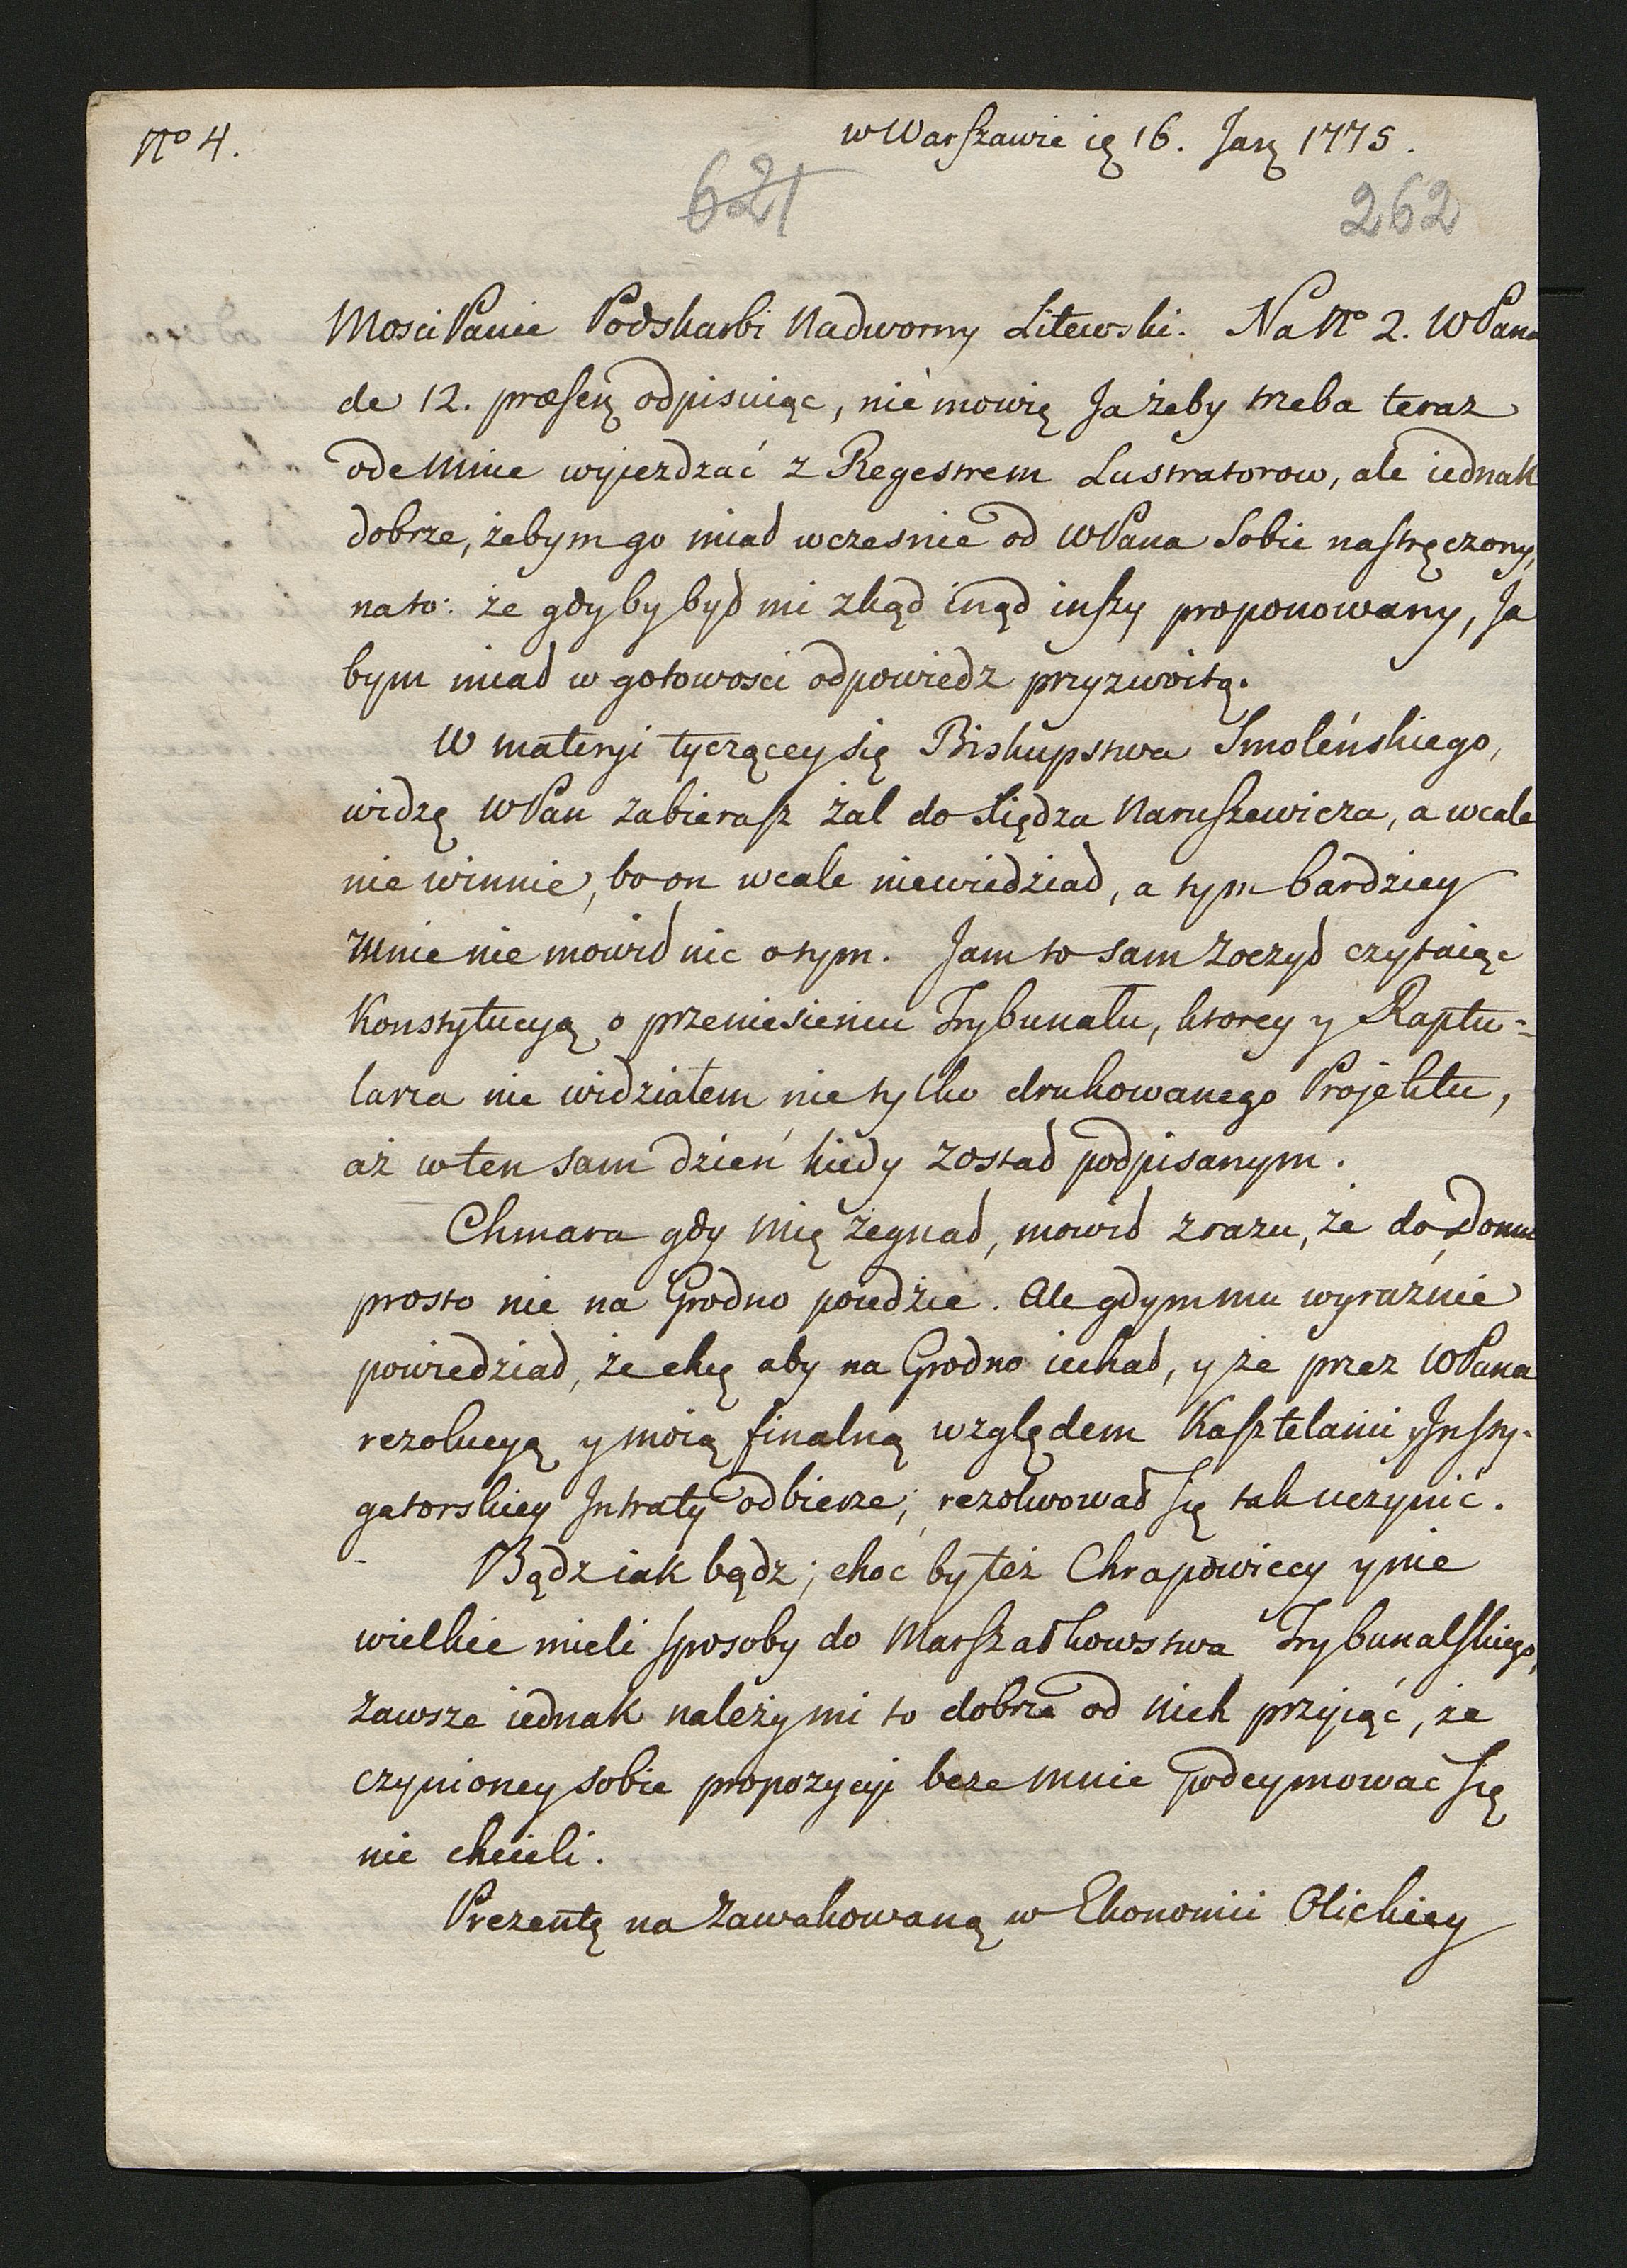 No 4.
w Warszawie ię 16. Janę 1775.
621
262
Mosci Panie Podskarbi Nadworny Litewski. Na No 2. WPana
de 12. præsenę odpisuiąc, nie mowię Ja żeby trzeba teraz
odemnie wyjezdzać z Regestrem Lustratorow, ale iednak
dobrze, żebym go miał wczesnie od WPana Sobie nastręczony,
na to: że gdyby był mi zkąd inąd inszy proponowany, Ja
bym miał w gotowosci odpowiedz przyzwoitą.
W materyi tyczącey się Biskupstwa Smoleńskiego,
widzę WPan zabierasz żal do Xiędza Naruszewicza, a wcale
nie winnie, bo on wcale niewiedział, a tym bardziey
zmnie nie mowił nic o tym. Jam to sam Zoczył czytaiąc
Konstytucyą o przeniesieniu Trybunału, ktorey y Raptu-
larza nie widziałem nie tylko drukowanego Projektu,
aż w ten sam dzień kiedy został podpisanym.
Chmara gdy mię żegnał, mowił zrazu, że do Domu
prosto nie na Grodno poiedzie. Ale gdym mu wyraźnie
powiedział, że chcę aby na Grodno iechał, y że przez WPana
rezolucyą y moią finalną względem Kasztelanii y Insty-
gatorskiey Intraty odbierze; rezolwował się tak uczynić.
Bądz iak bądz; choc by też Chrapowiccy y nie
wielkie mieli sposoby do Marszałkowstwa Trybunalskiego,
zawsze iednak należy mi to dobrze od nich przyiąć, że
czynioney sobie propozycyi bezemnie podeymować się
nie chcieli.
Prezentę na Zawakowaną w Ekonomii Olickiey